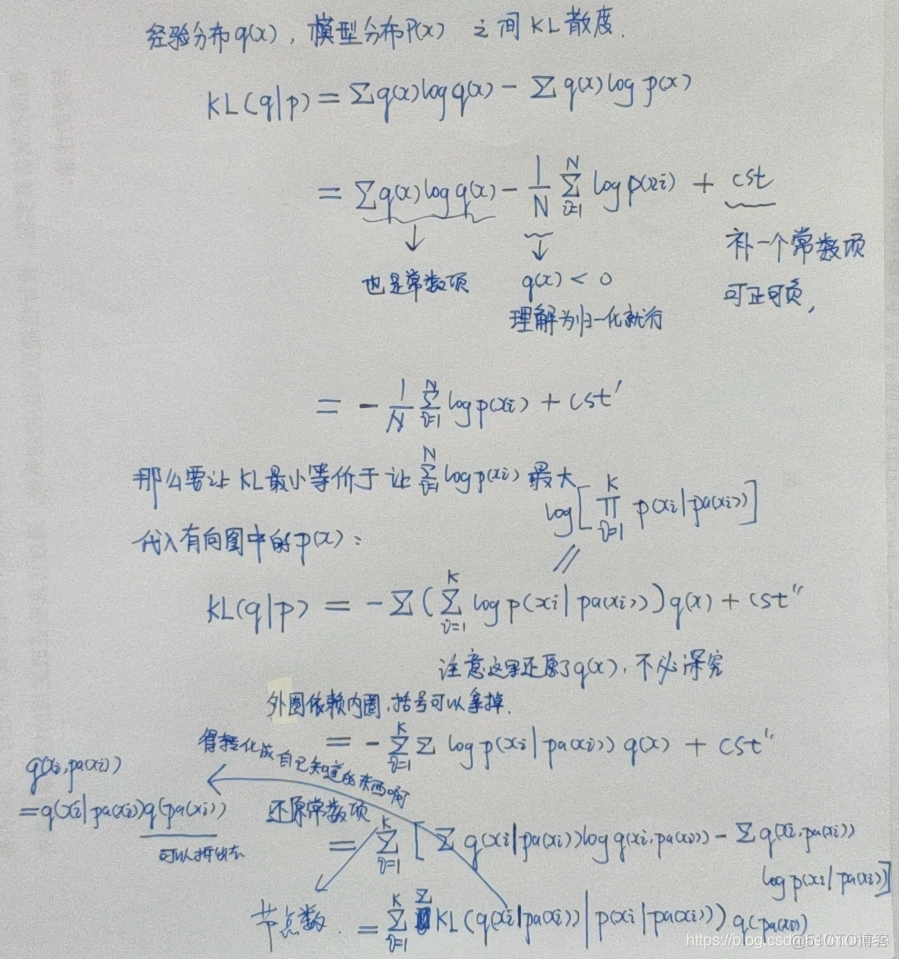 经验分布q(x), 模型分布P(x) 之间KL散度.
KL(q|p) = Σq(x)logq(x) - Σ q(x)log p(x)
= Σq(x)logq(x) - 1/N Σ_{i=1}^{N} log p(xi) + cst
也是常数项
q(x) < 0
理解为归一化就行
补一个常数项
可正可负,
= - 1/N Σ_{i=1}^{N} log p(xi) + cst'
那么要让KL最小等价于让 Σ_{i=1}^{N} log p(xi) 最大
log[ Π_{i=1}^{K} p(xi|pa(xi))]
代入有向图中的p(x):
//
KL(q|p) = -Σ( Σ_{i=1}^{K} log p(xi|pa(xi)))q(x) + cst''
注意这里还原了q(x), 不必深究
外圈依赖内圈, 括号可以拿掉.
= - Σ_{i=1}^{K} Σ log p(xi|pa(xi)) q(x) + cst''
得转化成自己知道的东西啊
q(xi,pa(xi))
=q(xi|pa(xi))q(pa(xi))
可以拆出去
还原常数项
= Σ_{i=1}^{K} [ Σ q(xi|pa(xi))log q(xi,pa(xi)) - Σ q(xi,pa(xi))
log p(xi|pa(xi))]
节点数.
= Σ_{i=1}^{K} Σ KL(q(xi|pa(xi))|p(xi|pa(xi))) q(pa(xi))
https://blog.csd@51CTO博客